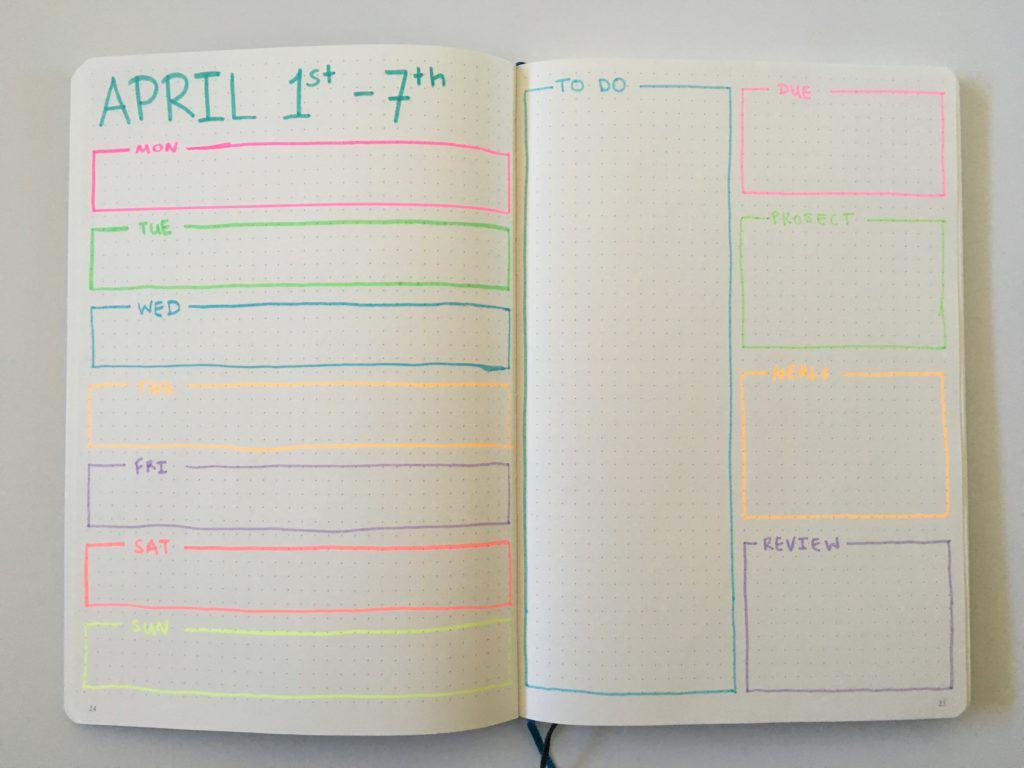 APRIL 1st - 7th
MON
TUE
WED
THU
FRI
SAT
SUN
24
TO DO
DUE
PROJECT
MEALS
REVIEW
25